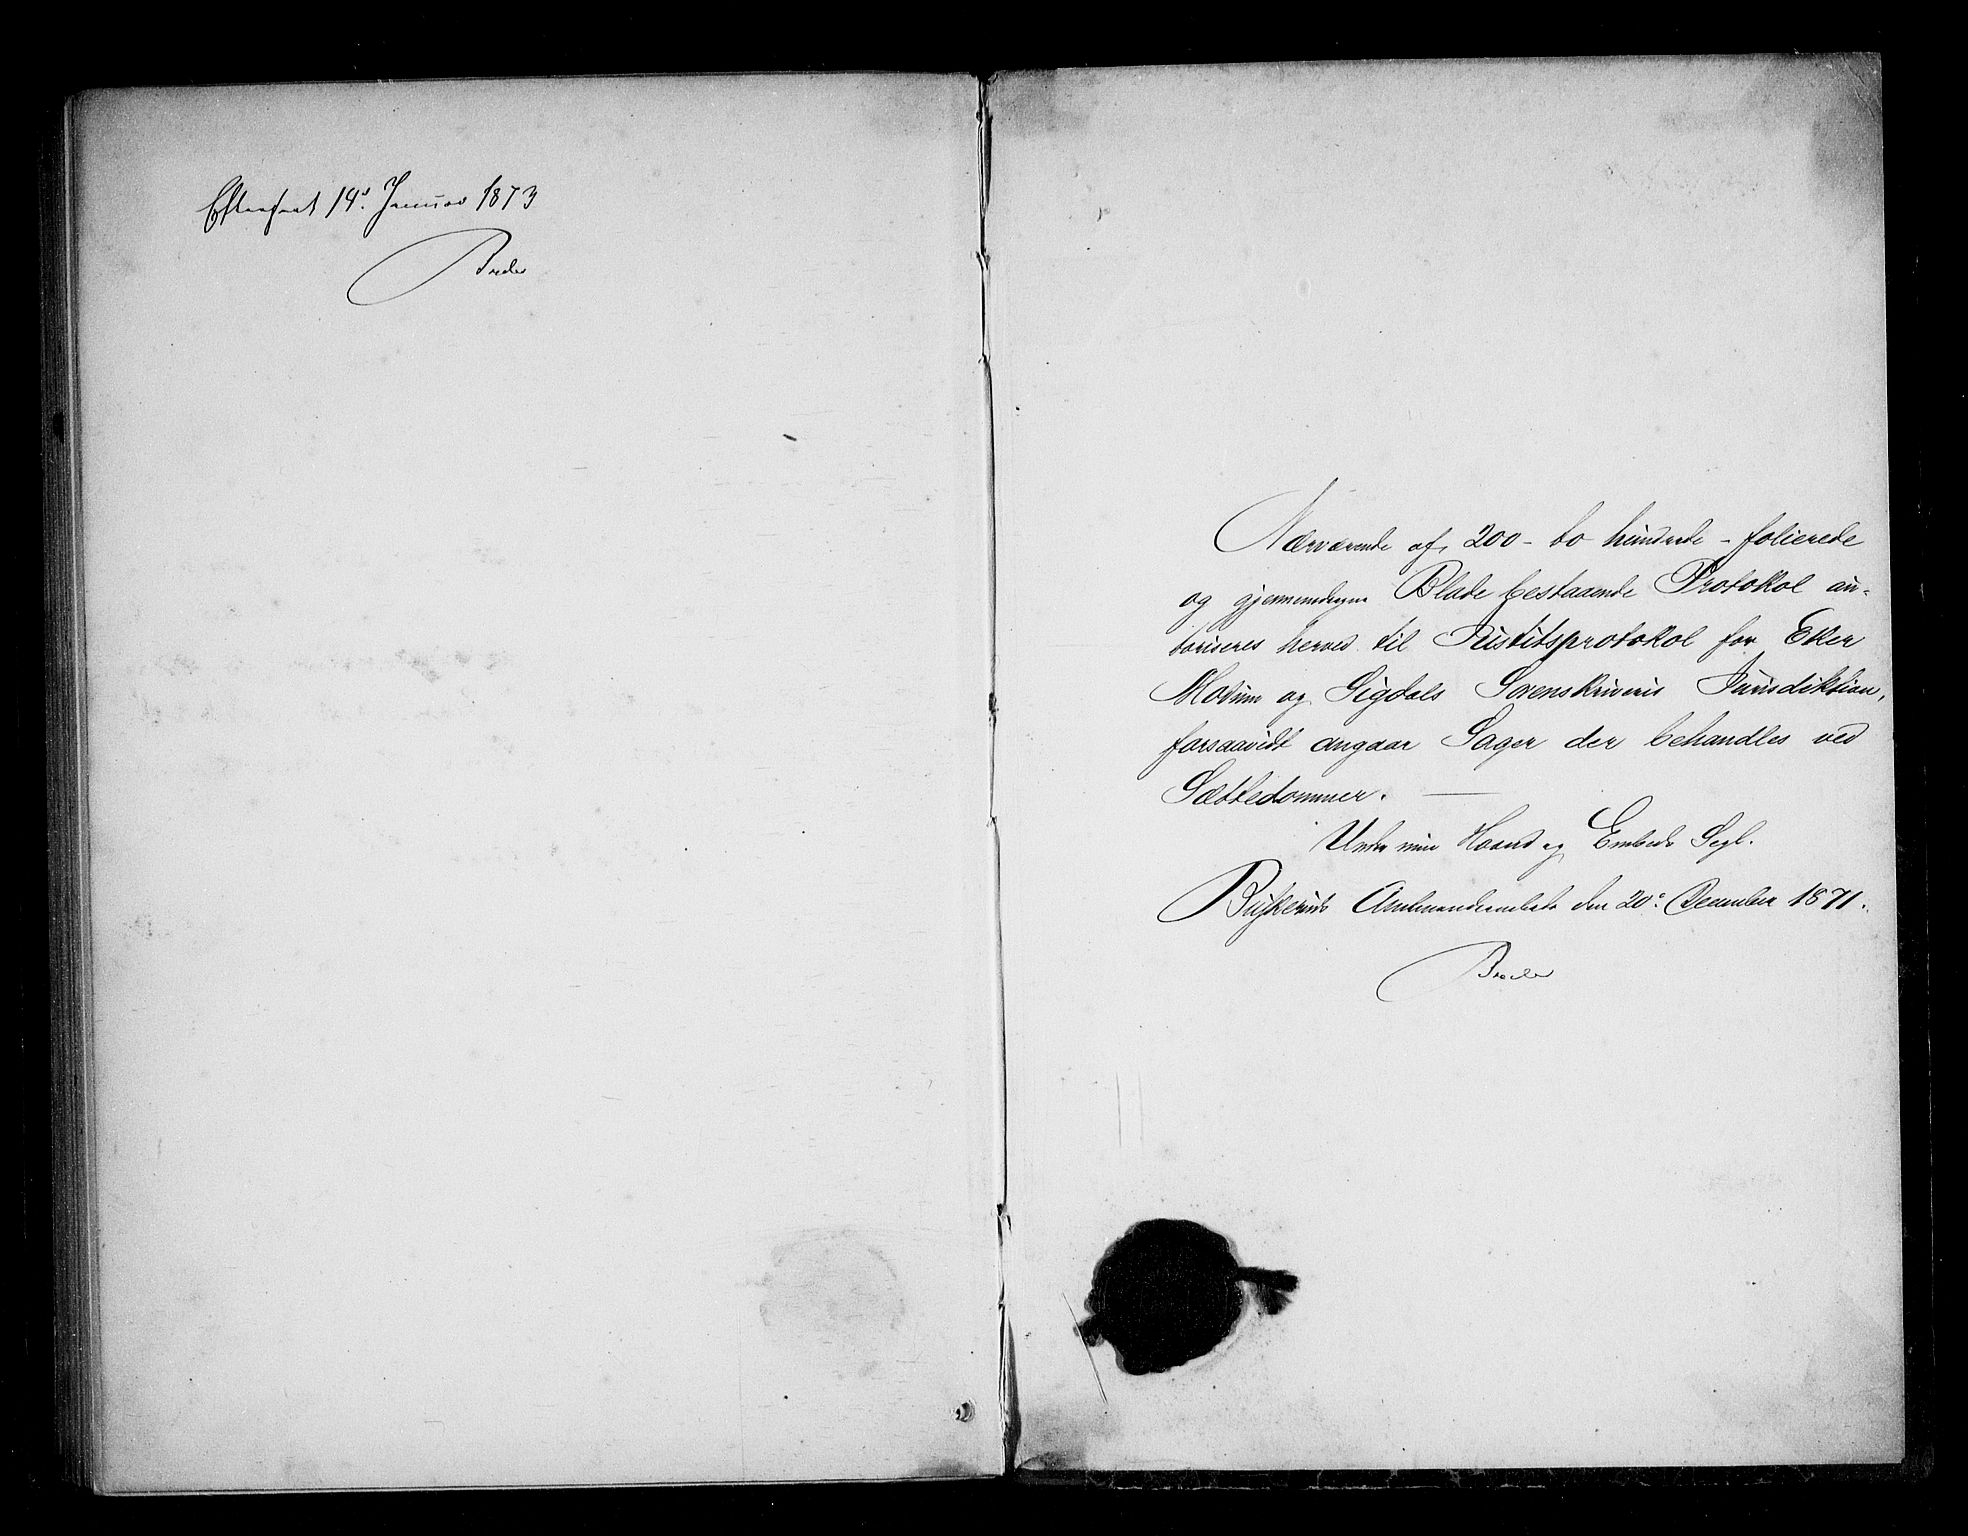 Efterseet 14de Januar 1873
Breder
Nærværende af 200 - to hundrede - folierede
og gjennemdragne Blade bestaaende Protokol au-
toriseres herved til Justitsprotokol for Eker
Modum og Sigdals Sorenskriveris Jurisdiktion,
forsaavidt angaar Sager der behandles ved
Sættedommer.
Under min Haand og Embeds Segl.
Buskeruds Amtmandsembede den 20de December 1871.
Breder